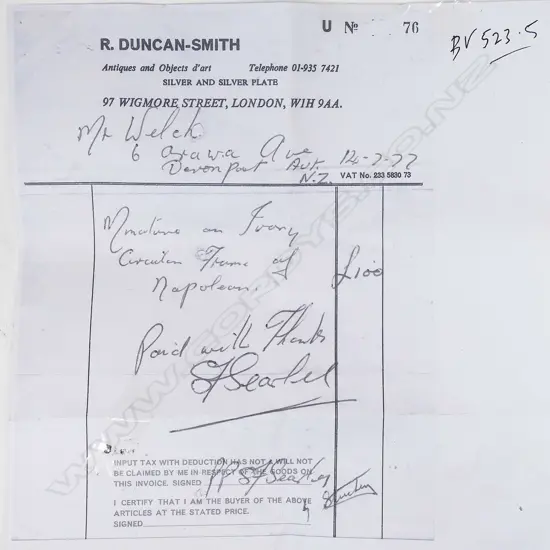 U No 76
BV 523.5
R. DUNCAN-SMITH
Antiques and Objects d'art Telephone 01-935 7421
SILVER AND SILVER PLATE
97 WIGMORE STREET, LONDON, W1H 9AA.
Mr Welch
6 Arawa Ave
Devonport Auk. 14-7-77
N.Z. VAT No. 233 5830 73
Minature on Ivory
Circular Frame of £100
Napoleon.
Paid with Thanks
INPUT TAX WITH DEDUCTION HAS NOT & WILL NOT
BE CLAIMED BY ME IN RESPECT OF THE GOODS ON
THIS INVOICE. SIGNED PP
I CERTIFY THAT I AM THE BUYER OF THE ABOVE
ARTICLES AT THE STATED PRICE.
SIGNED
WWW.CORDYS.CO.NZ